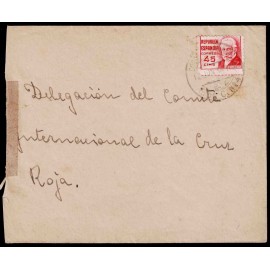 REPUBLICA
ESPAÑOLA
45
CTMS
Delegación del Comité
Internacional de la Cruz
Roja.